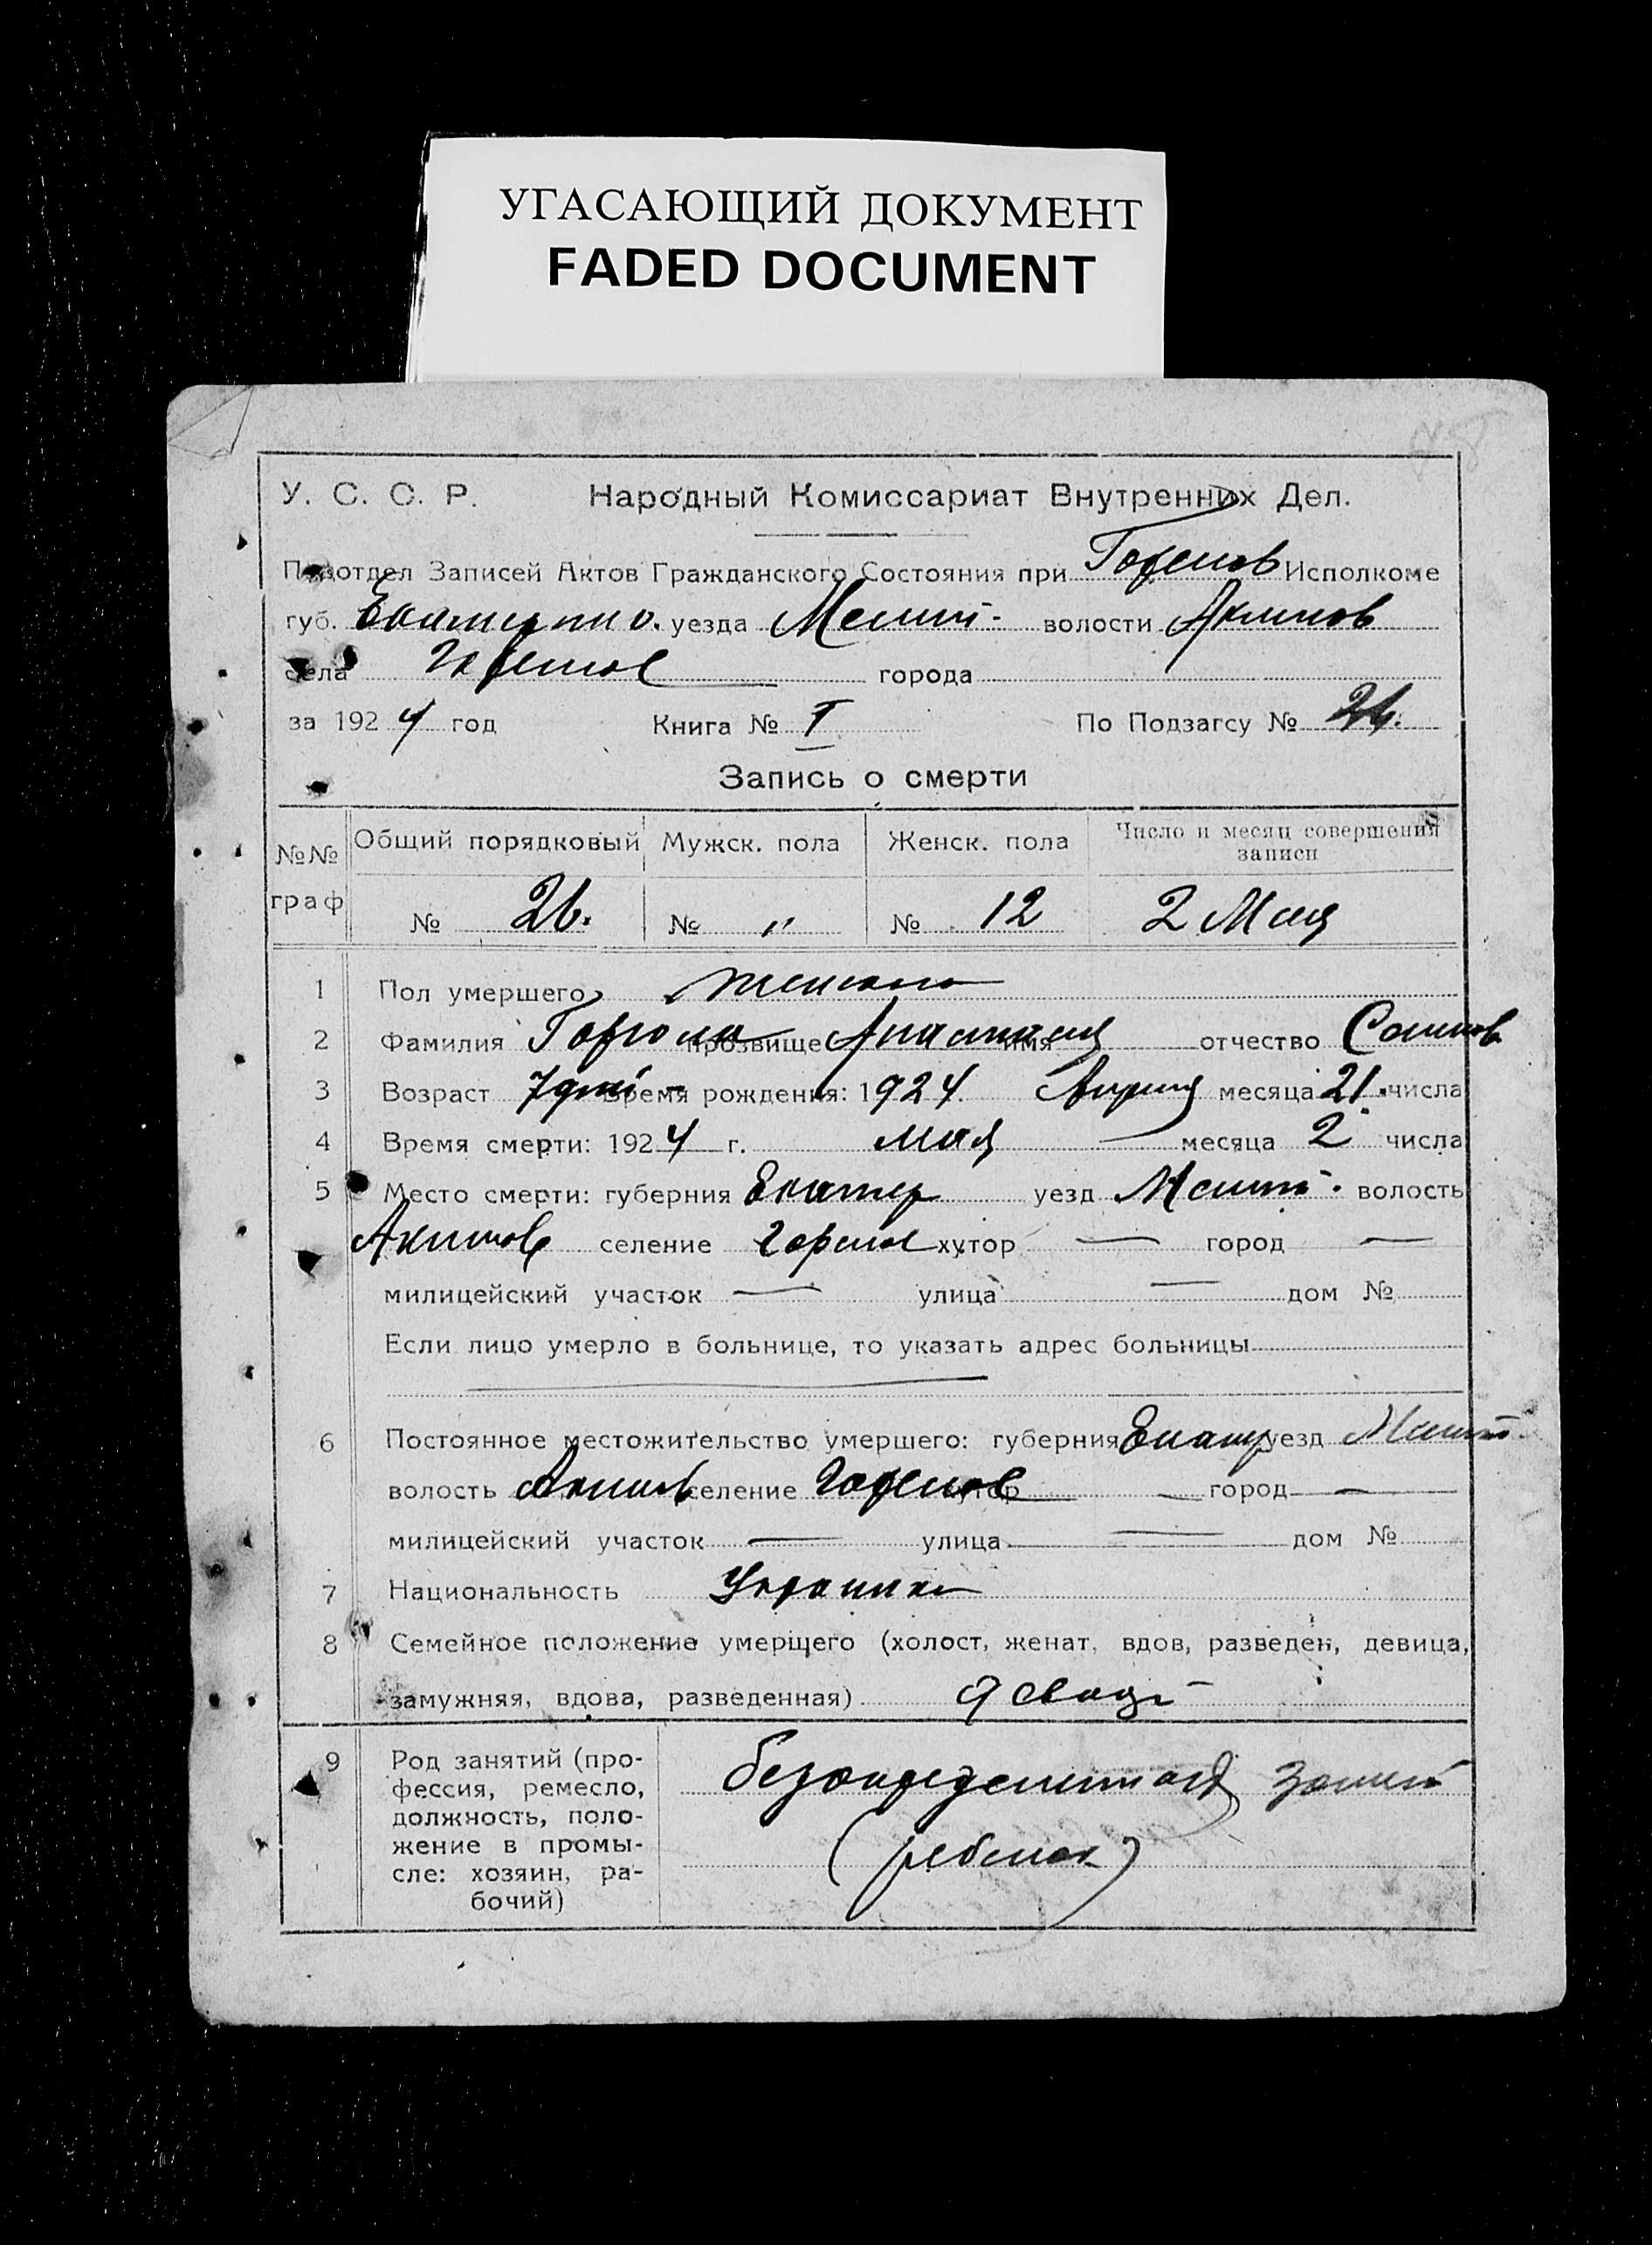 УГАСАЮЩИЙ ДОКУМЕНТ
FADED DOCUMENT
У. С. С. Р. Народный Комиссариат Внутренних Дел.
Подотдел Записей Актов Гражданского Состояния при Исполкоме
губ. уезда Мелит. волости Акимов
села города
за 1924 год Книга № I По Подзагсу №
Запись о смерти
№№ граф Общий порядковый Мужск. пола Женск. пола Число и месяц совершения записи
№ 26. № " № 12 2 Мая
1 Пол умершего
2 Фамилия прозвище Анастасия имя отчество
3 Возраст Время рождения: 1924. Апреля месяца 21. числа
4 Время смерти: 1924 г. мая месяца 2 числа
5 Место смерти: губерния Екатер уезд Мелит. волость
Акимов селение хутор — город —
милицейский участок — улица — дом №
Если лицо умерло в больнице, то указать адрес больницы
—
6 Постоянное местожительство умершего: губерния Екатер уезд Мелит.
волость Акимов селение хутор — город —
милицейский участок — улица — дом №
7 Национальность
8 Семейное положение умершего (холост, женат, вдов, разведен, девица,
замужняя, вдова, разведенная)
9 Род занятий (про-
фессия, ремесло,
должность, поло-
жение в промы-
сле: хозяин, ра-
бочий)
(ребенок)